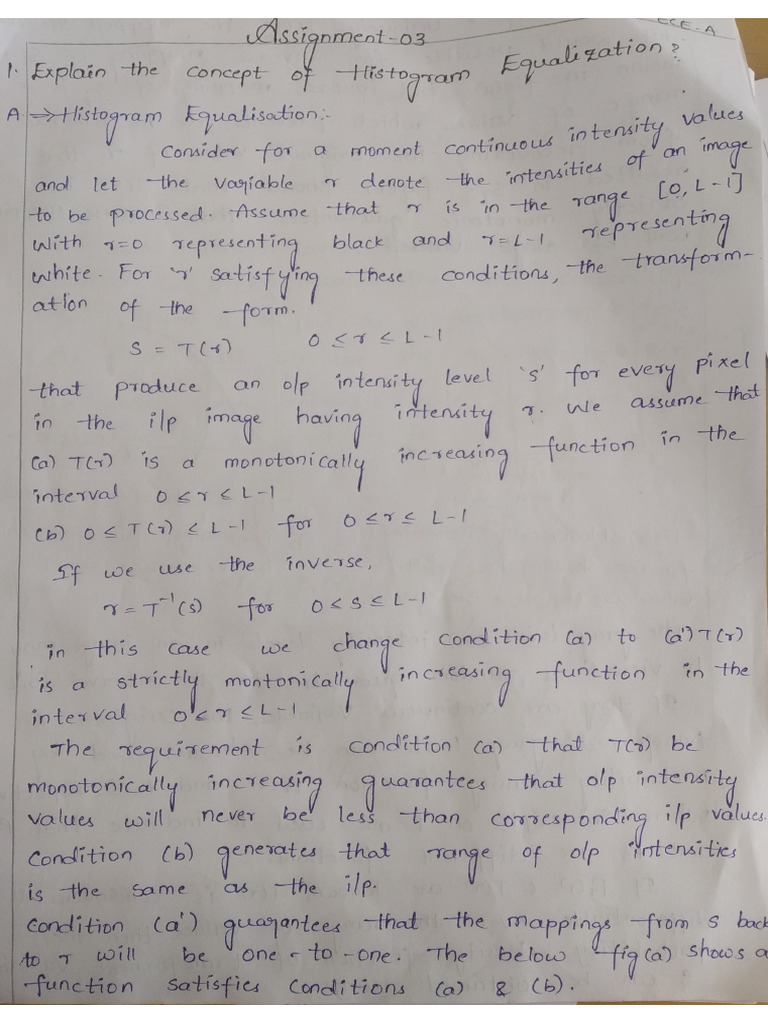 CCE-A
Assignment-03
1. Explain the concept of Histogram Equalization?
A ⇒ Histogram Equalisation:-
Consider for a moment continuous intensity values
and let the variable r denote the intensities of an image
to be processed. Assume that r is in the range [0, L-1]
with r=0 representing black and r=L-1 representing
white. For 'r' satisfying these conditions, the transform-
ation of the form.
S = T(r) 0 ≤ r ≤ L-1
that produce an o/p intensity level 's' for every pixel
in the i/p image having intensity r. We assume that
(a) T(r) is a monotonically increasing function in the
interval 0 ≤ r ≤ L-1
(b) 0 ≤ T(r) ≤ L-1 for 0 ≤ r ≤ L-1
If we use the inverse,
r = T⁻¹(s) for 0 ≤ s ≤ L-1
in this case we change condition (a) to (a') T(r)
is a strictly montonically increasing function in the
interval 0 ≤ r ≤ L-1
The requirement is condition (a) that T(r) be
monotonically increasing guarantees that o/p intensity
values will never be less than corresponding i/p values.
Condition (b) generates that range of o/p intensities
is the same as the i/p.
Condition (a') guarantees that the mappings from s back
to r will be one-to-one. The below fig(a) shows a
function satisfies conditions (a) & (b).